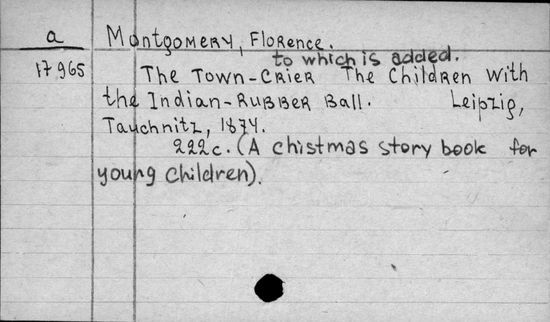 a Montgomery, Florence.
to which is added.
17965 The Town-Crier The Children with
the Indian-Rubber Ball. Leipzig,
Tauchnitz, 1874.
222c. (A chistmas story book for
young children).